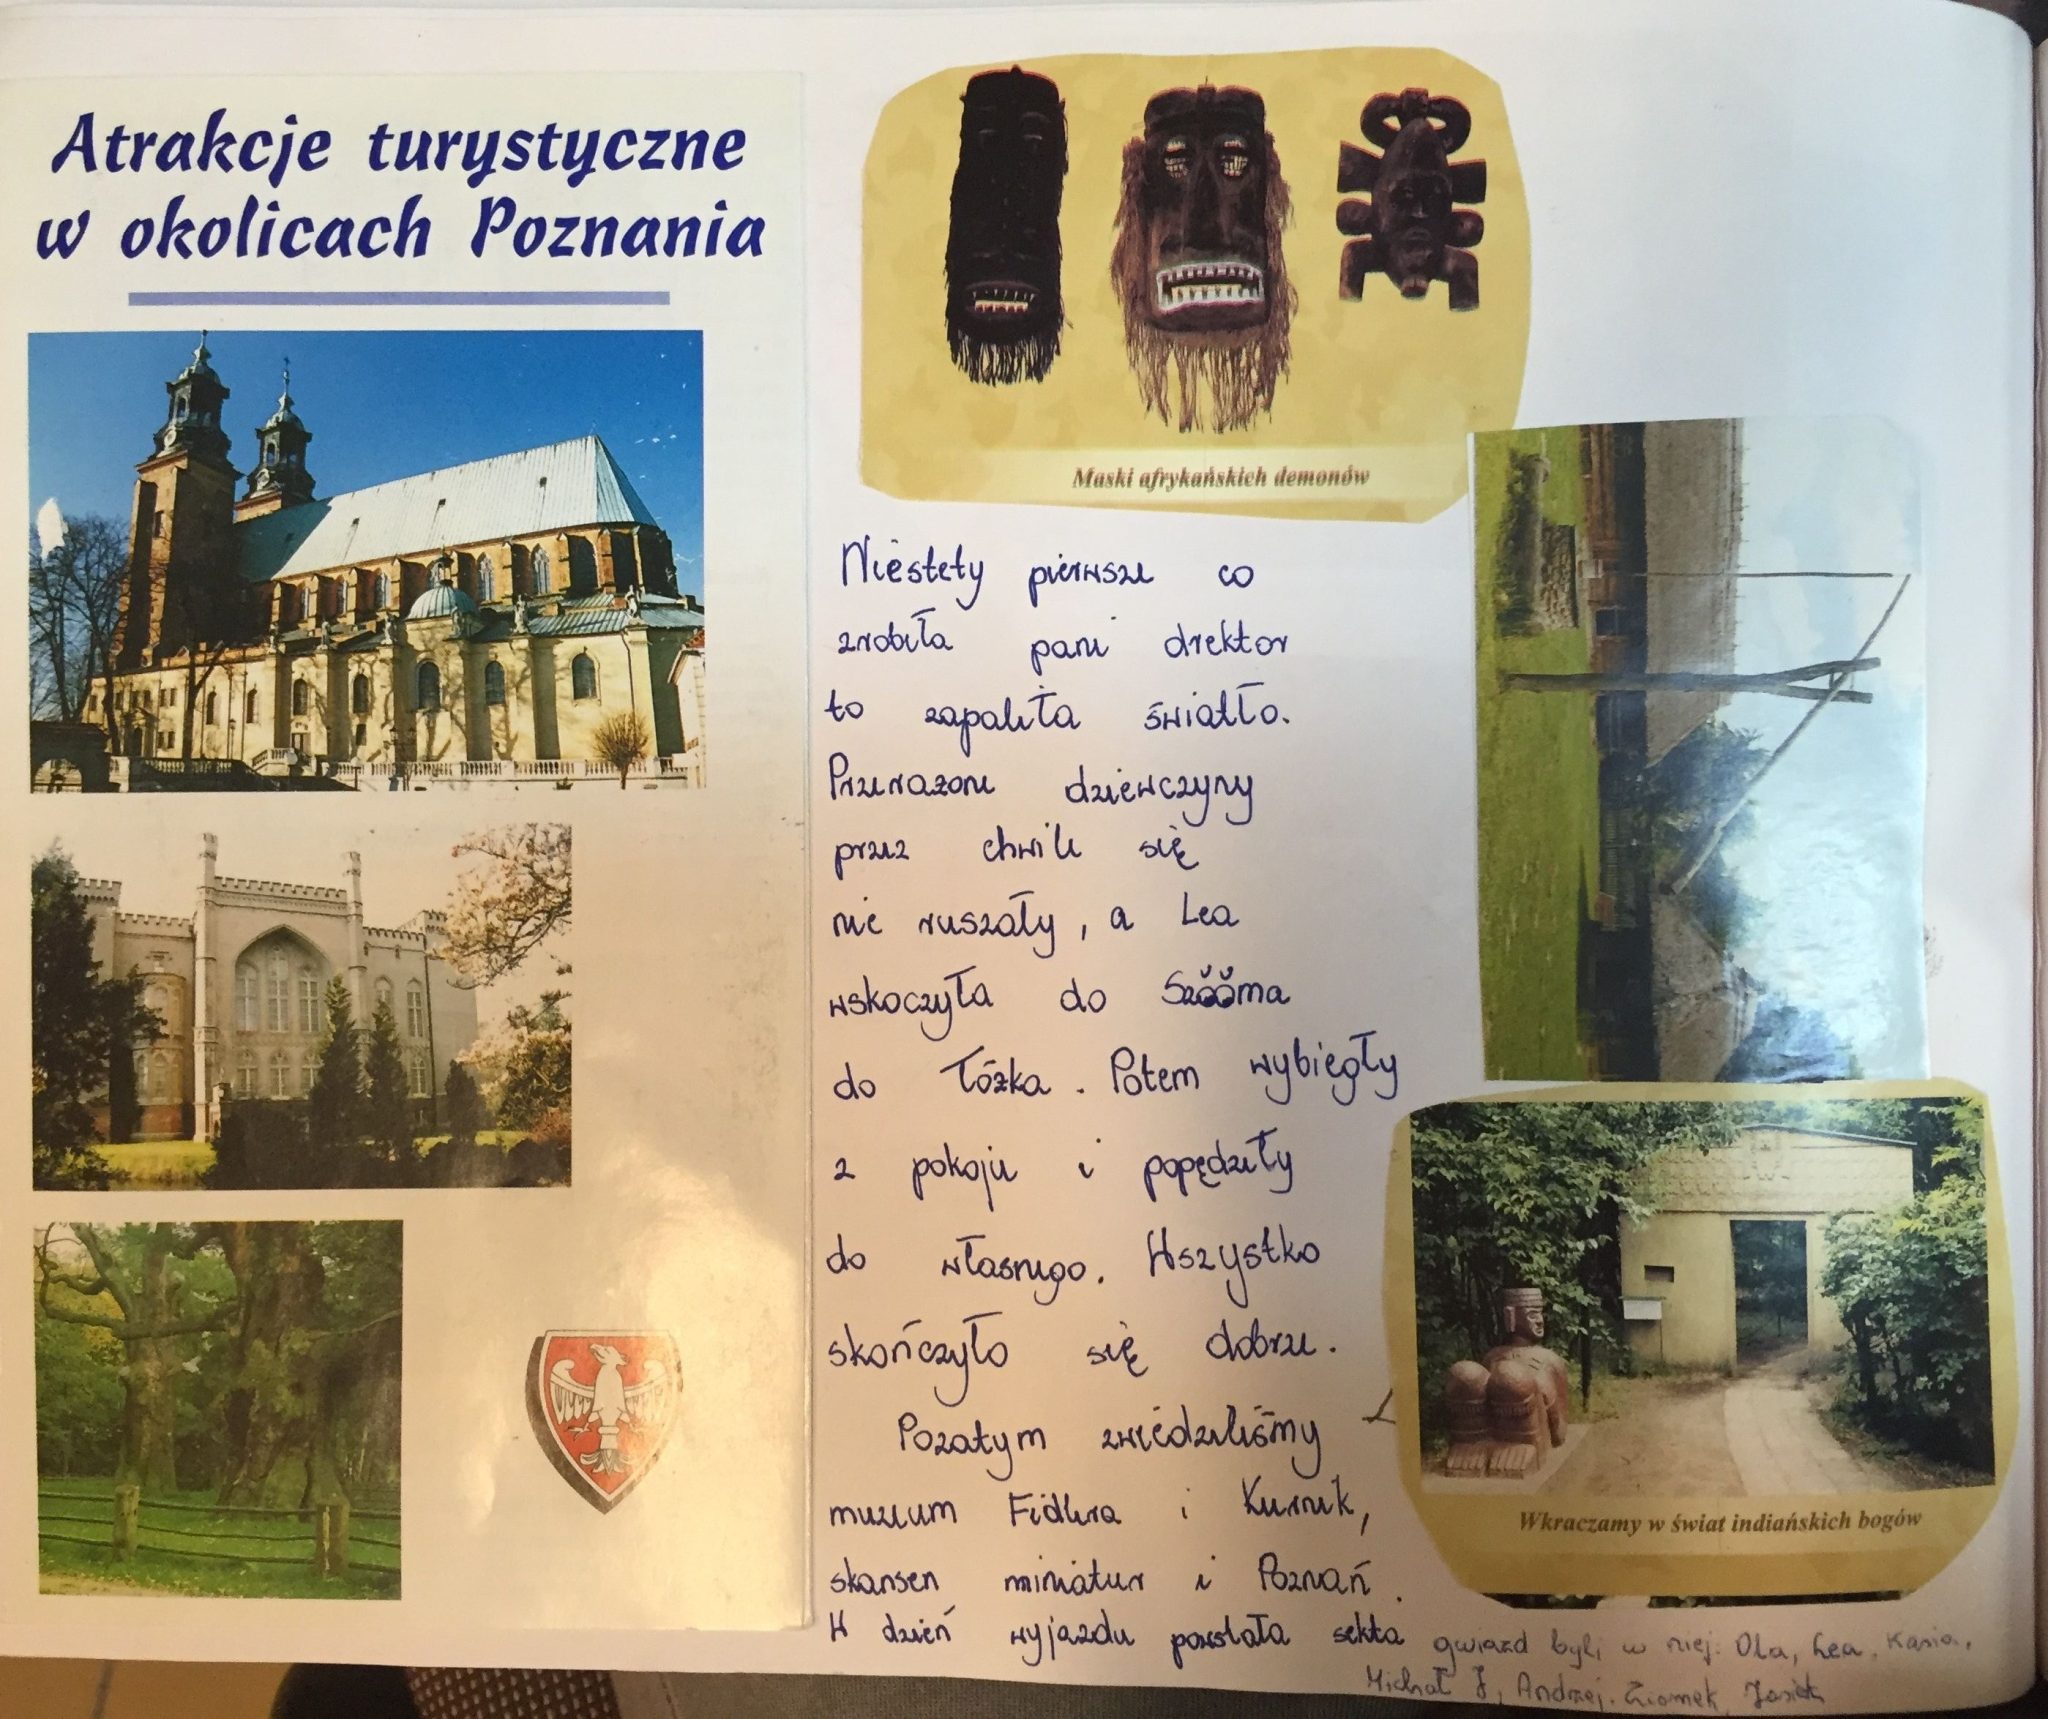 Atrakcje turystyczne
w okolicach Poznania
Maski afrykańskich demonów
Niestety pierwsze co
zrobiła pani drektor
to zapaliła światło.
Przerażone dziewczyny
przez chwile się
nie ruszały, a Lea
wskoczyła do Szööma
do łóżka. Potem wybiegły
z pokoju i popędziły
do własnego. Wszystko
skończyło się dobrze.
Pozatym zwiedziliśmy
muzeum Fidlera i Kurnik,
skansen miniatur i Poznań.
W dzień wyjazdu powstała sekta gwiazd byli w niej: Ola, Lea, Kasia,
Michał J, Andrzej, Ziomek, Jasiek
Wkraczamy w świat indiańskich bogów